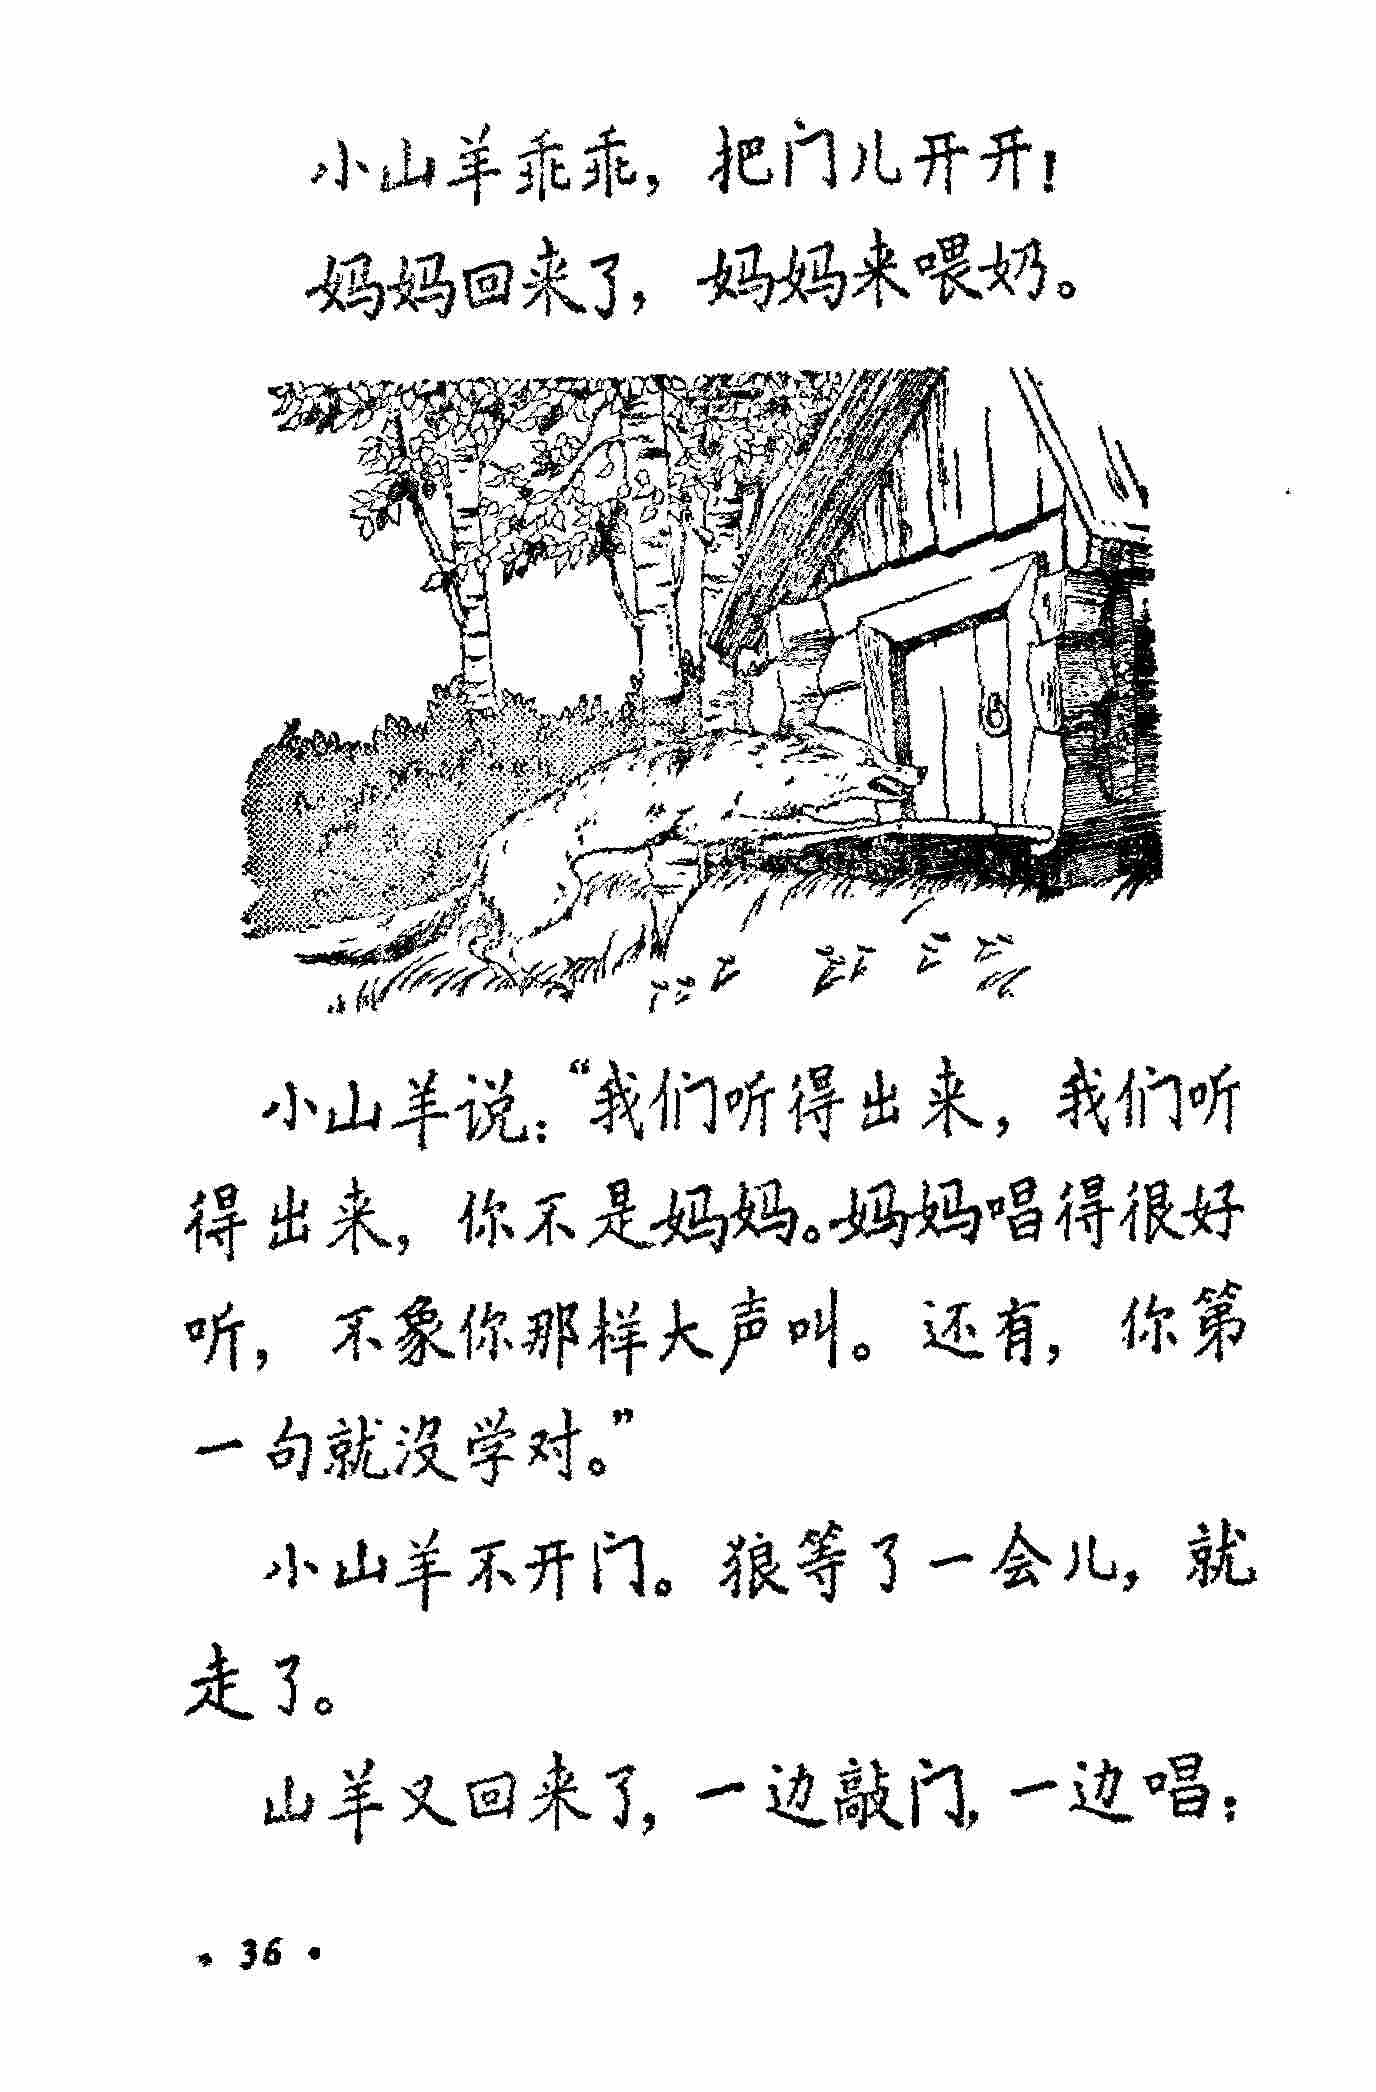 小山羊乖乖，把门儿开开！
妈妈回来了，妈妈来喂奶。
小山羊说：“我们听得出来，我们听
得出来，你不是妈妈。妈妈唱得很好
听，不象你那样大声叫。还有，你第
一句就没学对。”
小山羊不开门。狼等了一会儿，就
走了。
山羊又回来了，一边敲门，一边唱：
·36·